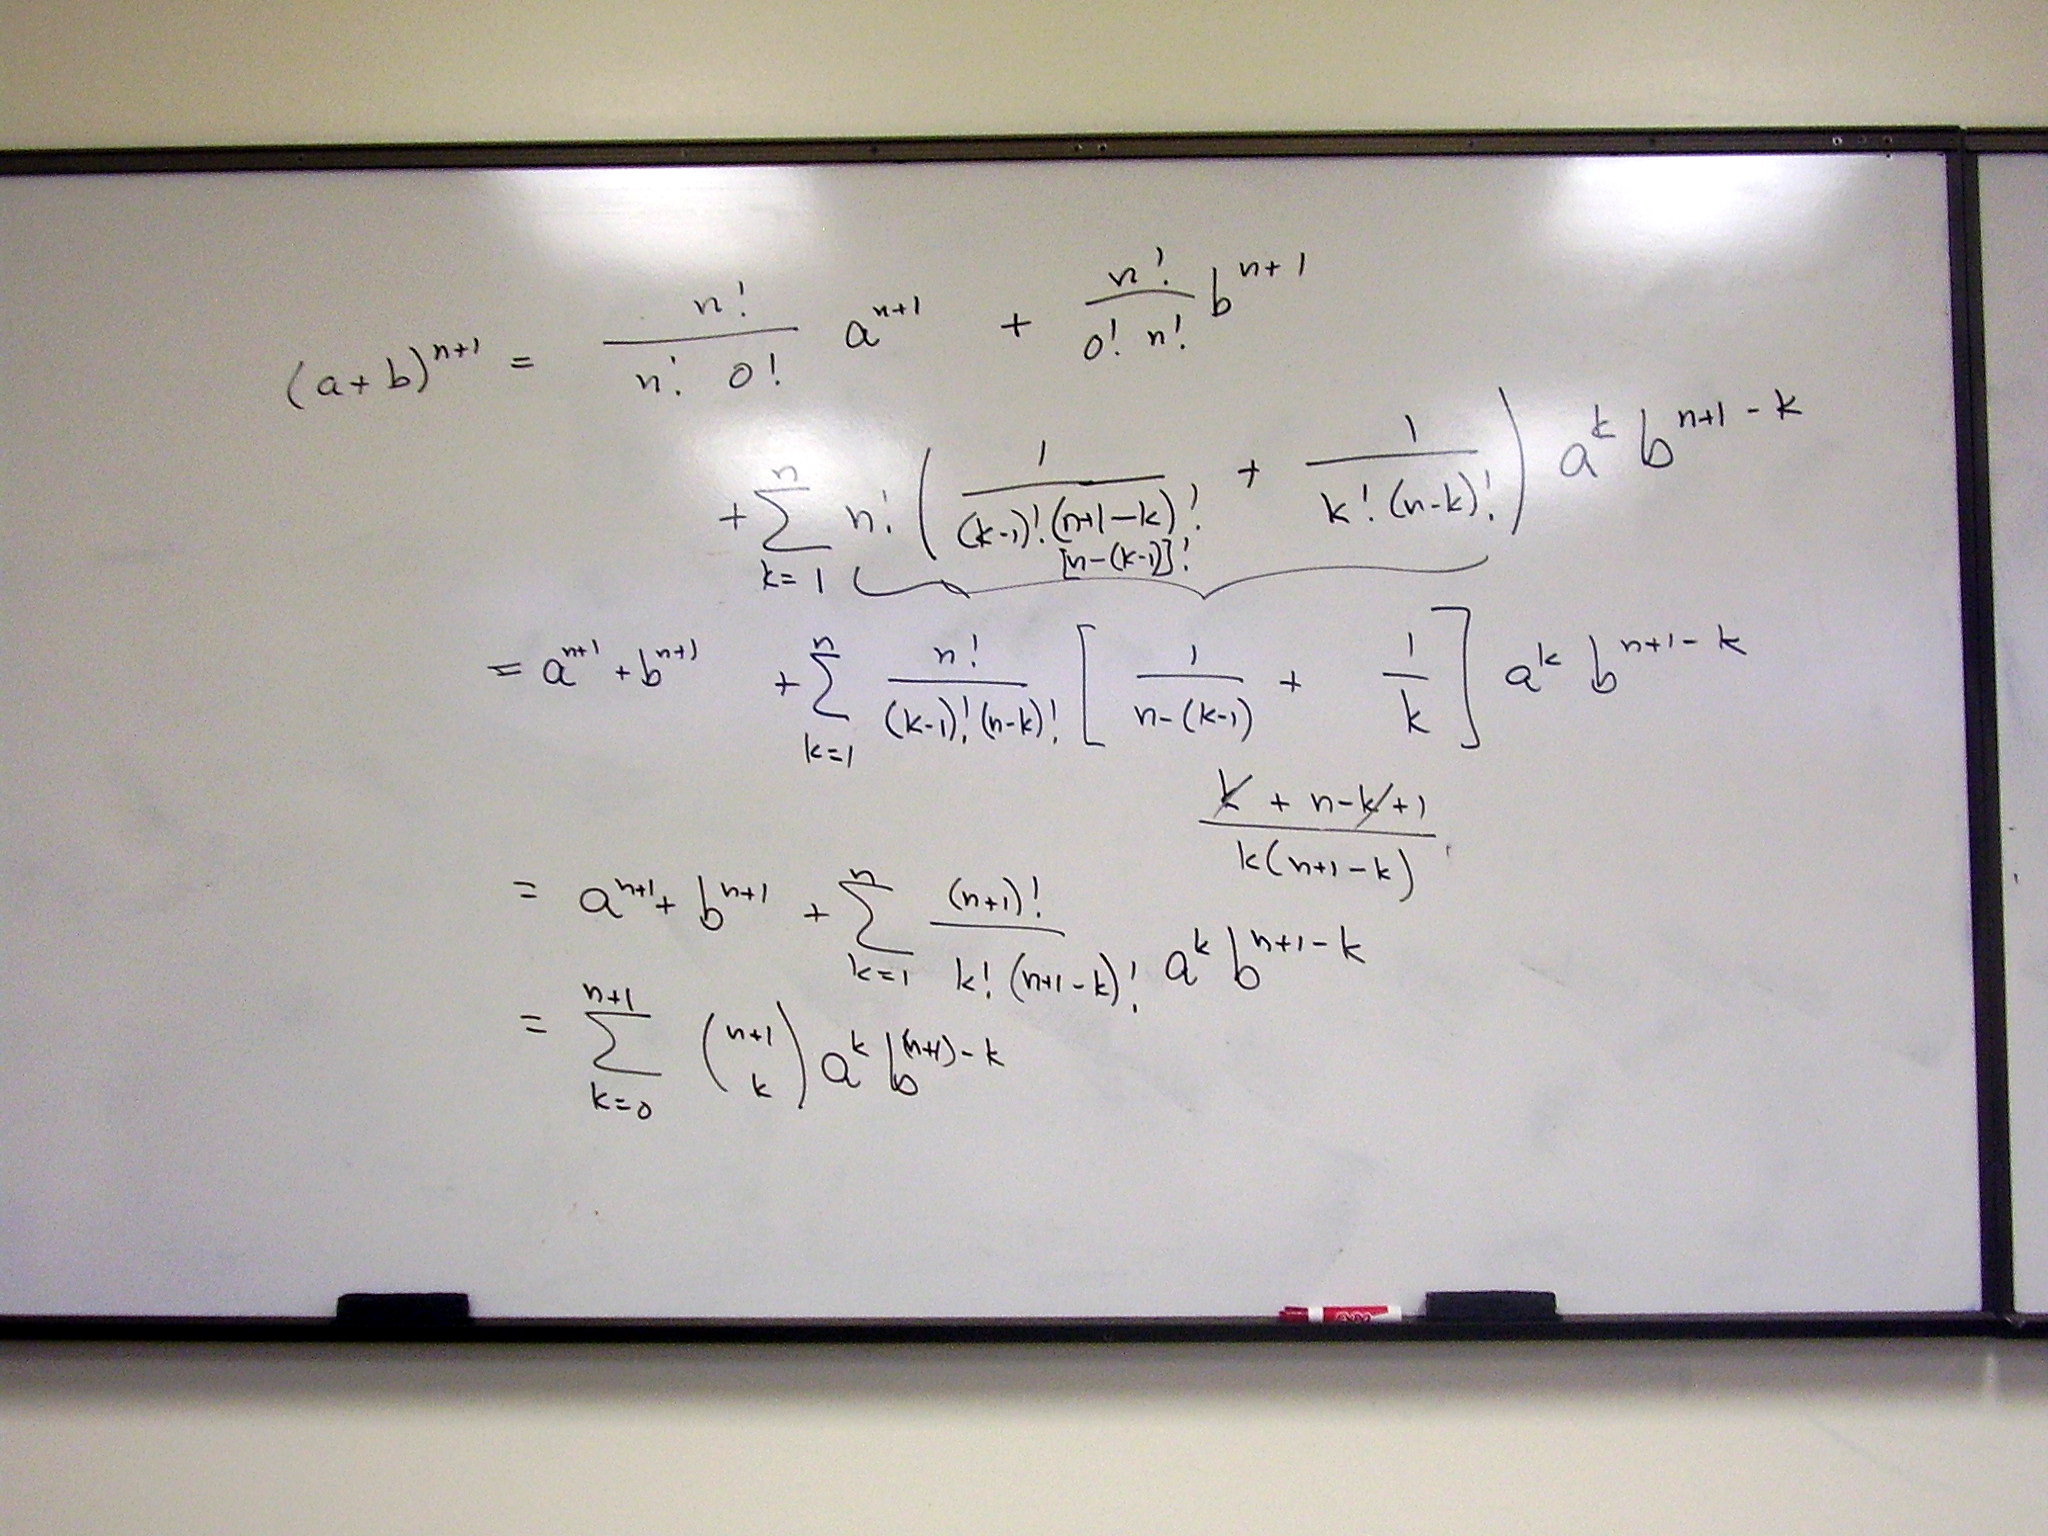 (a+b)^{n+1} = \frac{n!}{n! 0!} a^{n+1} + \frac{n!}{0! n!} b^{n+1}
+ \sum_{k=1}^{n} n! \left( \frac{1}{(k-1)! (n+1-k)!} + \frac{1}{k! (n-k)!} \right) a^k b^{n+1-k}
[n-(k-1)]!
= a^{n+1} + b^{n+1} + \sum_{k=1}^{n} \frac{n!}{(k-1)! (n-k)!} \left[ \frac{1}{n-(k-1)} + \frac{1}{k} \right] a^k b^{n+1-k}
\frac{k + n-k+1}{k(n+1-k)}
= a^{n+1} + b^{n+1} + \sum_{k=1}^{n} \frac{(n+1)!}{k! (n+1-k)!} a^k b^{n+1-k}
= \sum_{k=0}^{n+1} \binom{n+1}{k} a^k b^{(n+1)-k}